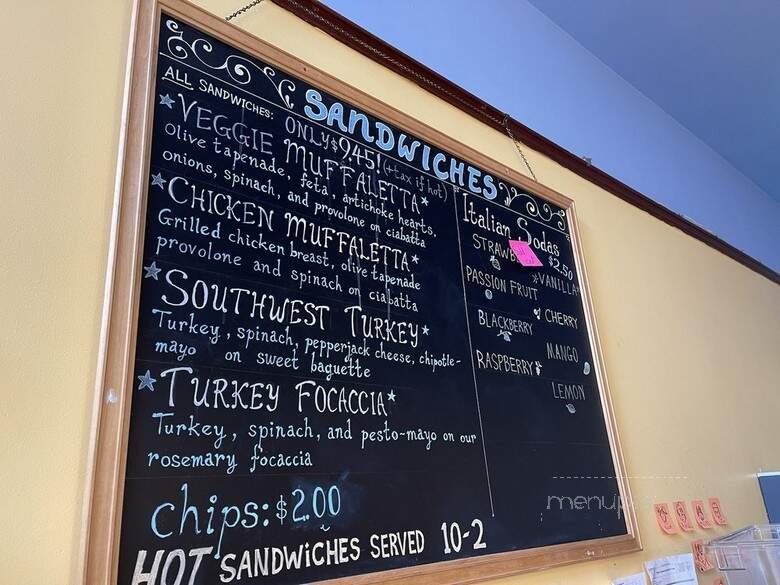 SANDWICHES
ALL SANDWICHES: ONLY $9.45! (+tax if hot)
VEGGIE MUFFALETTA
olive tapenade, feta, artichoke hearts,
onions, spinach, and provolone on ciabatta
CHICKEN MUFFALETTA
Grilled chicken breast, olive tapenade
provolone and spinach on ciabatta
SOUTHWEST TURKEY
Turkey, spinach, pepperjack cheese, chipotle-
mayo on sweet baguette
TURKEY FOCACCIA
Turkey, spinach, and pesto-mayo on our
rosemary focaccia
chips: $2.00
HOT SANDWICHES SERVED 10-2
Italian Sodas
$2.50
VANILLA
PASSION FRUIT
CHERRY
BLACKBERRY
MANGO
RASPBERRY
LEMON